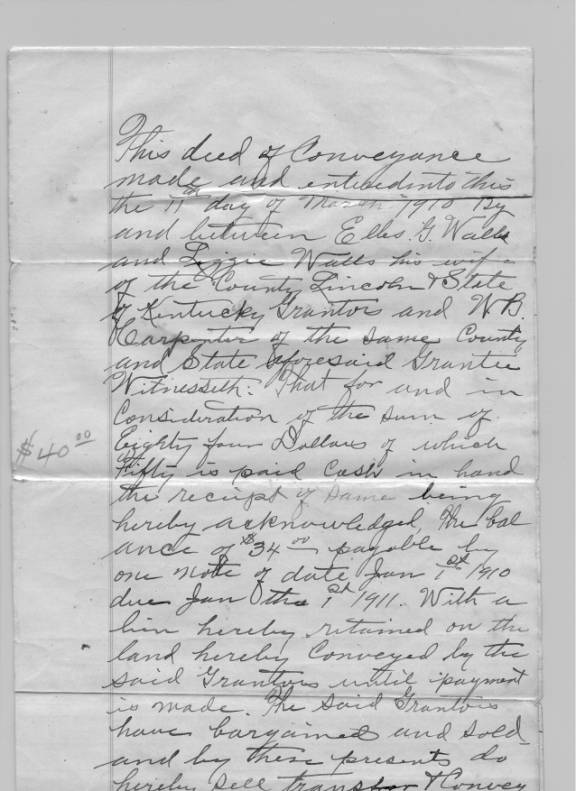 This deed of Conveyance
made and entered into this
the 11th day of March 1910 By
and between Elbs. G. Walls
and Lizzie Walls his wife
of the County Lincoln & State
of Kentucky Grantors and W B.
Carpenter of the same County
and State aforesaid Grantee
Witnesseth: That for and in
Consideration of the sum of
Eighty four Dollars of which
$40 00
Fifty is paid Cash in hand
the receipt of same being
hereby acknowledged, The bal
ance of $34 00 payable by
one note of date Jan 1st 1910
due Jan the 1st 1911. With a
lien hereby retained on the
land hereby Conveyed by the
said Grantors until payment
is made. The said Grantors
have bargained and sold
and by these presents do
hereby sell transfer & Convey